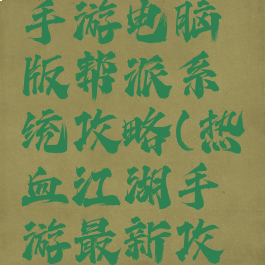 手游电脑
版帮派系
统攻略(热
血江湖手
游最新攻